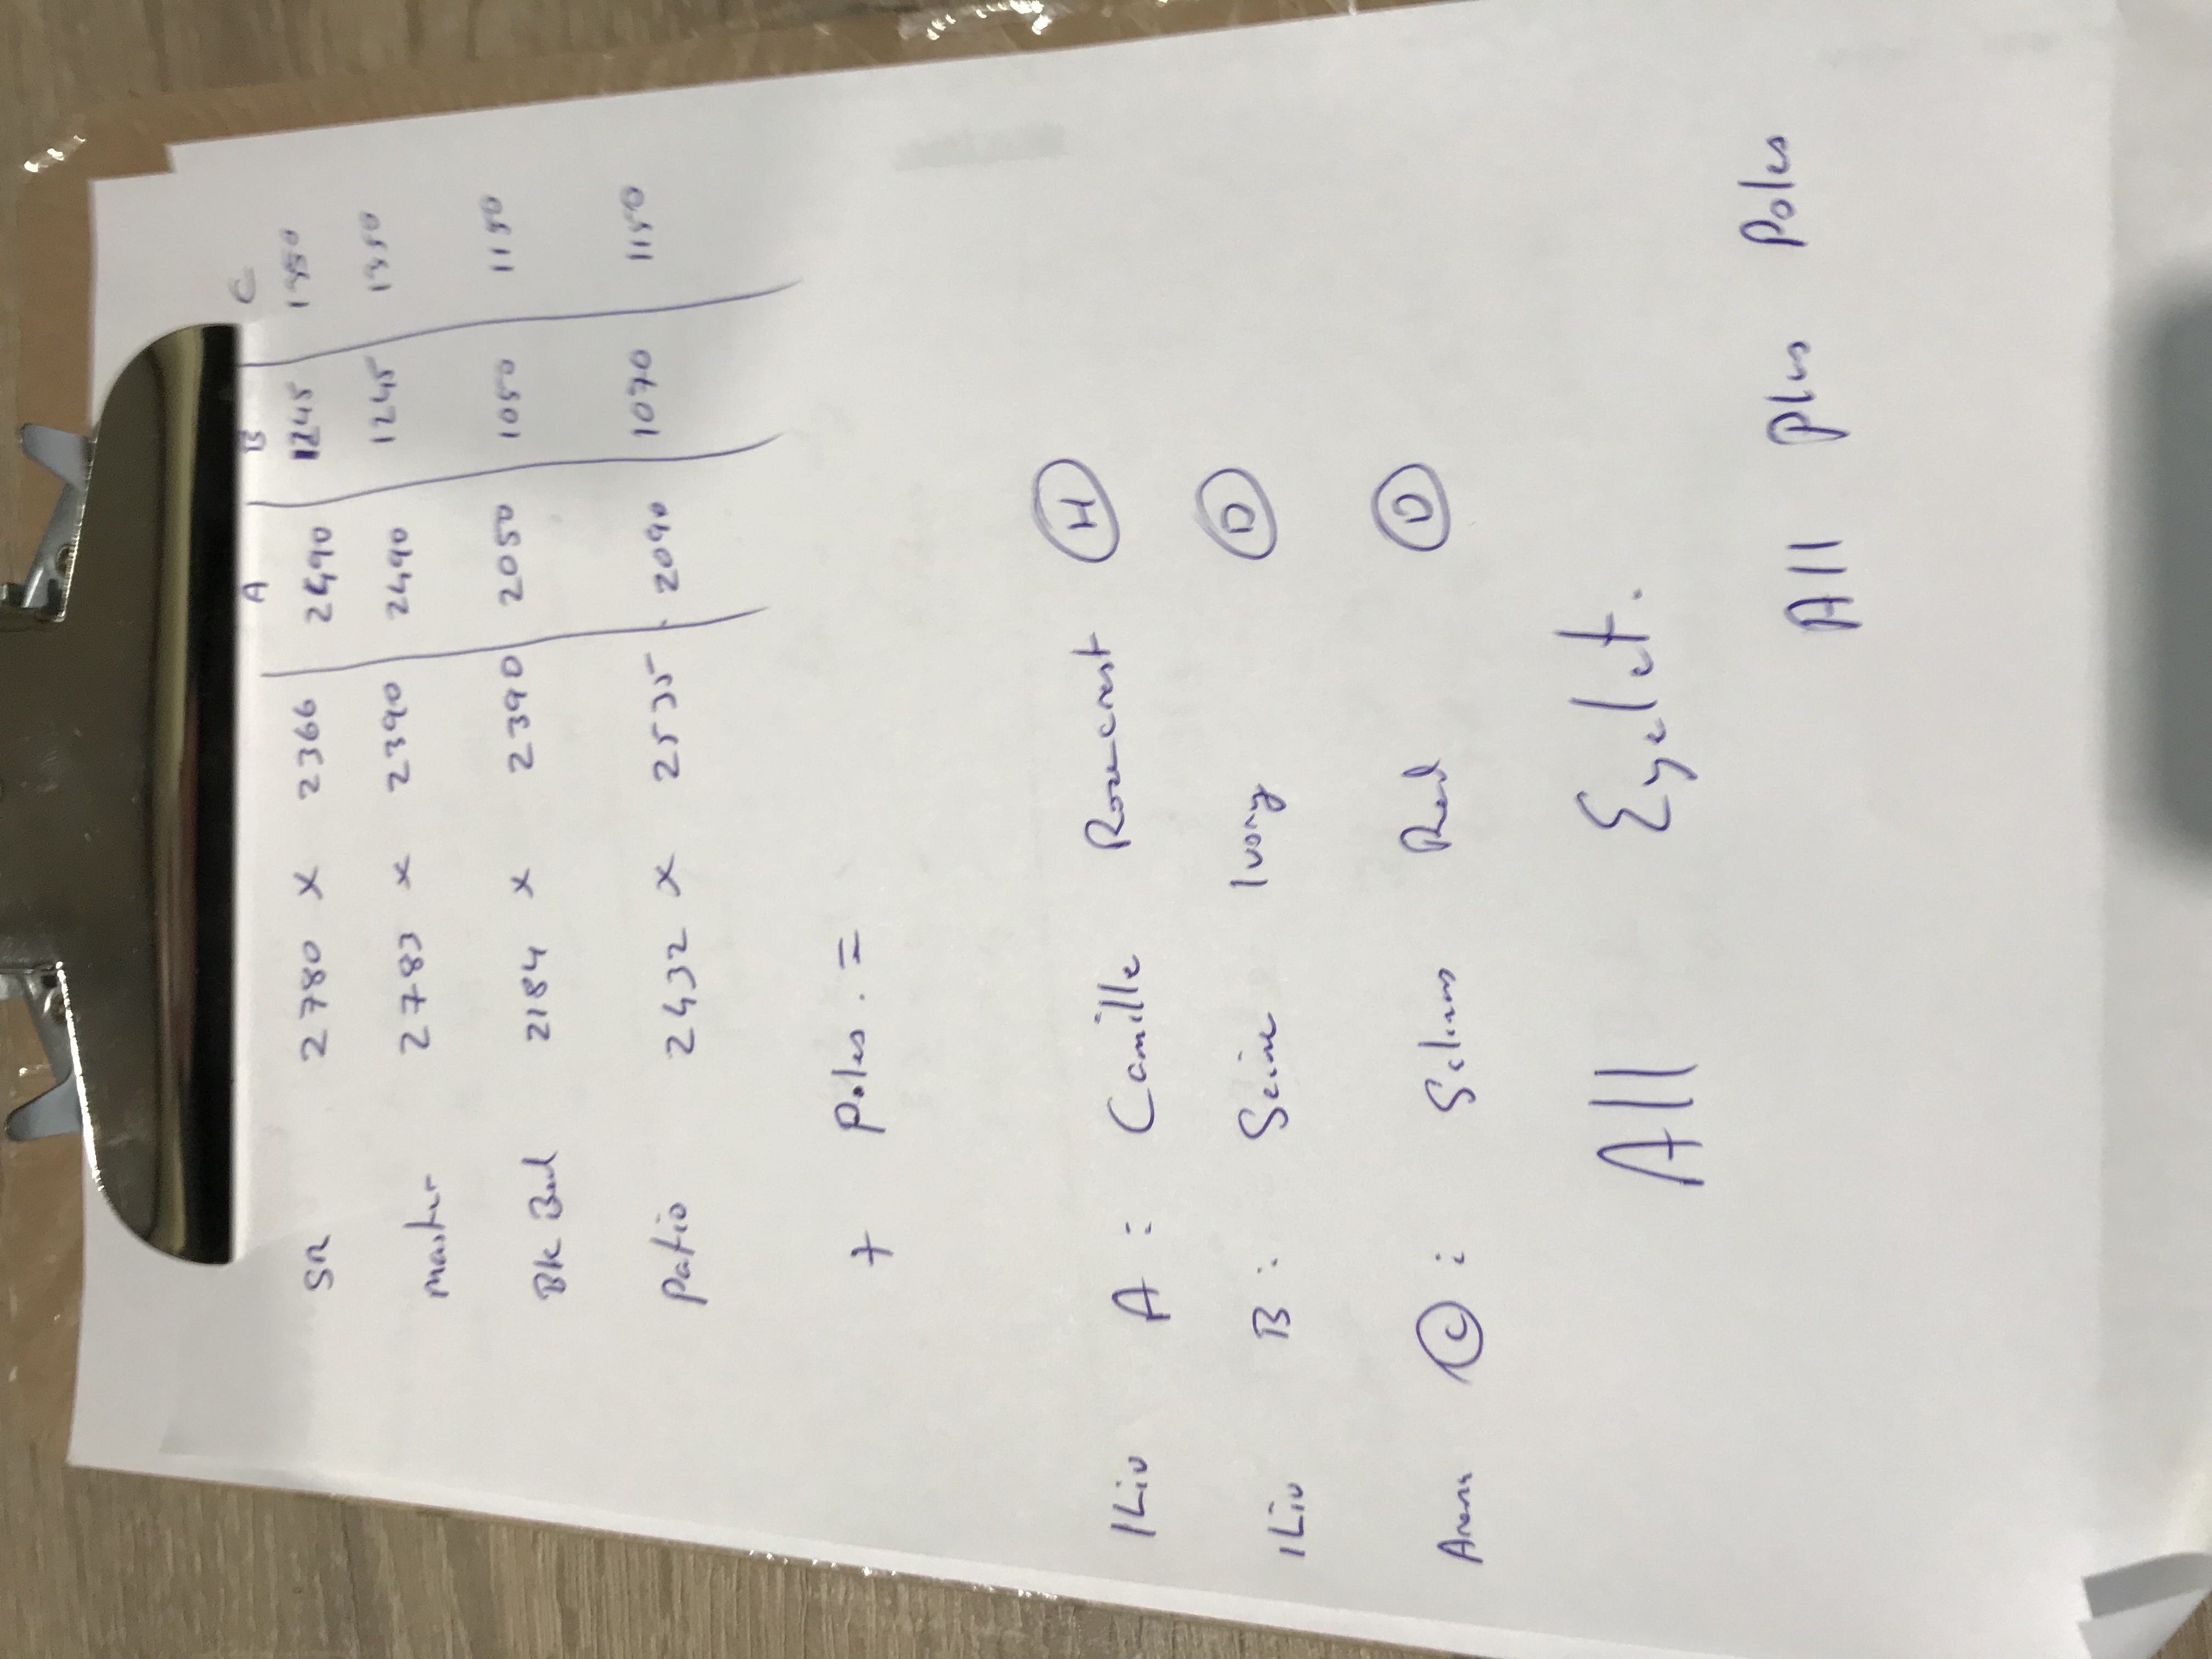 A B C
SR 2780 x 2366 2490 1245 1350
Master 2783 x 2390 2490 1245 1350
Bk Bed 2184 x 2390 2050 1050 1150
Patio 2432 x 2535 2090 1090 1150
+ Poles. =
ILiv A : Camille Rosecrest H
ILiv B : Seine Ivory D
C : Red D
All Eyelet.
All plus Poles